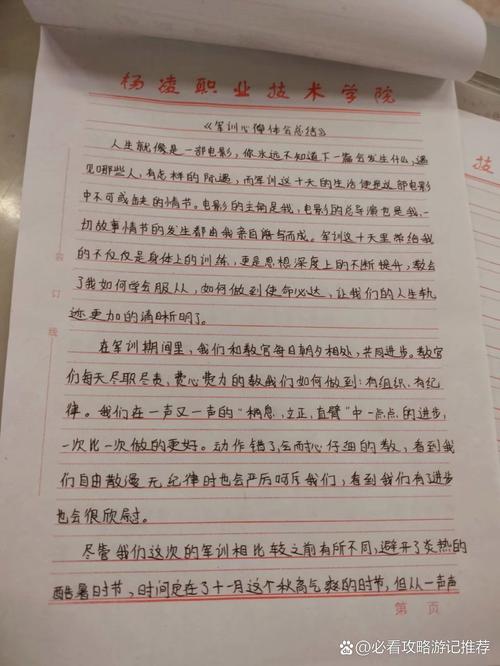 杨凌职业技术学院
《军训心得体会总结》
人生就像是一部电影,你永远不知道下一幕会发生什么,遇
见哪些人,有怎样的际遇,而军训这十天的生活便是这部电影
中不可或缺的情节。电影的主角是我,电影的总导演也是我,一
切故事情节的发生都由我亲自参与而成。军训这十天里带给我
的不仅仅是身体上的训练,更是思想深度上的不断提升,教会
了我如何学会服从,如何做到使命必达,让我们的人生轨
迹更加的清晰明了。
在军训期间里,我们和教官每日朝夕相处,共同进步。教官
们每天尽职尽责,费心费力的教我们如何做到:有组织、有纪
律。我们在一声又一声的"稍息,立正,直臂"中一点点的进步,
一次比一次做的更好。动作错了会耐心仔细的教,看到我
们自由散漫无纪律时也会严厉呵斥我们,看到我们有进步
也会很欣慰。
尽管我们这次的军训相比较之前有所不同,避开了炎热的
酷暑时节,时间定在了十一月这个秋高气爽的时节,但从一声声
第 页
装
订
线
技
@必看攻略游记推荐